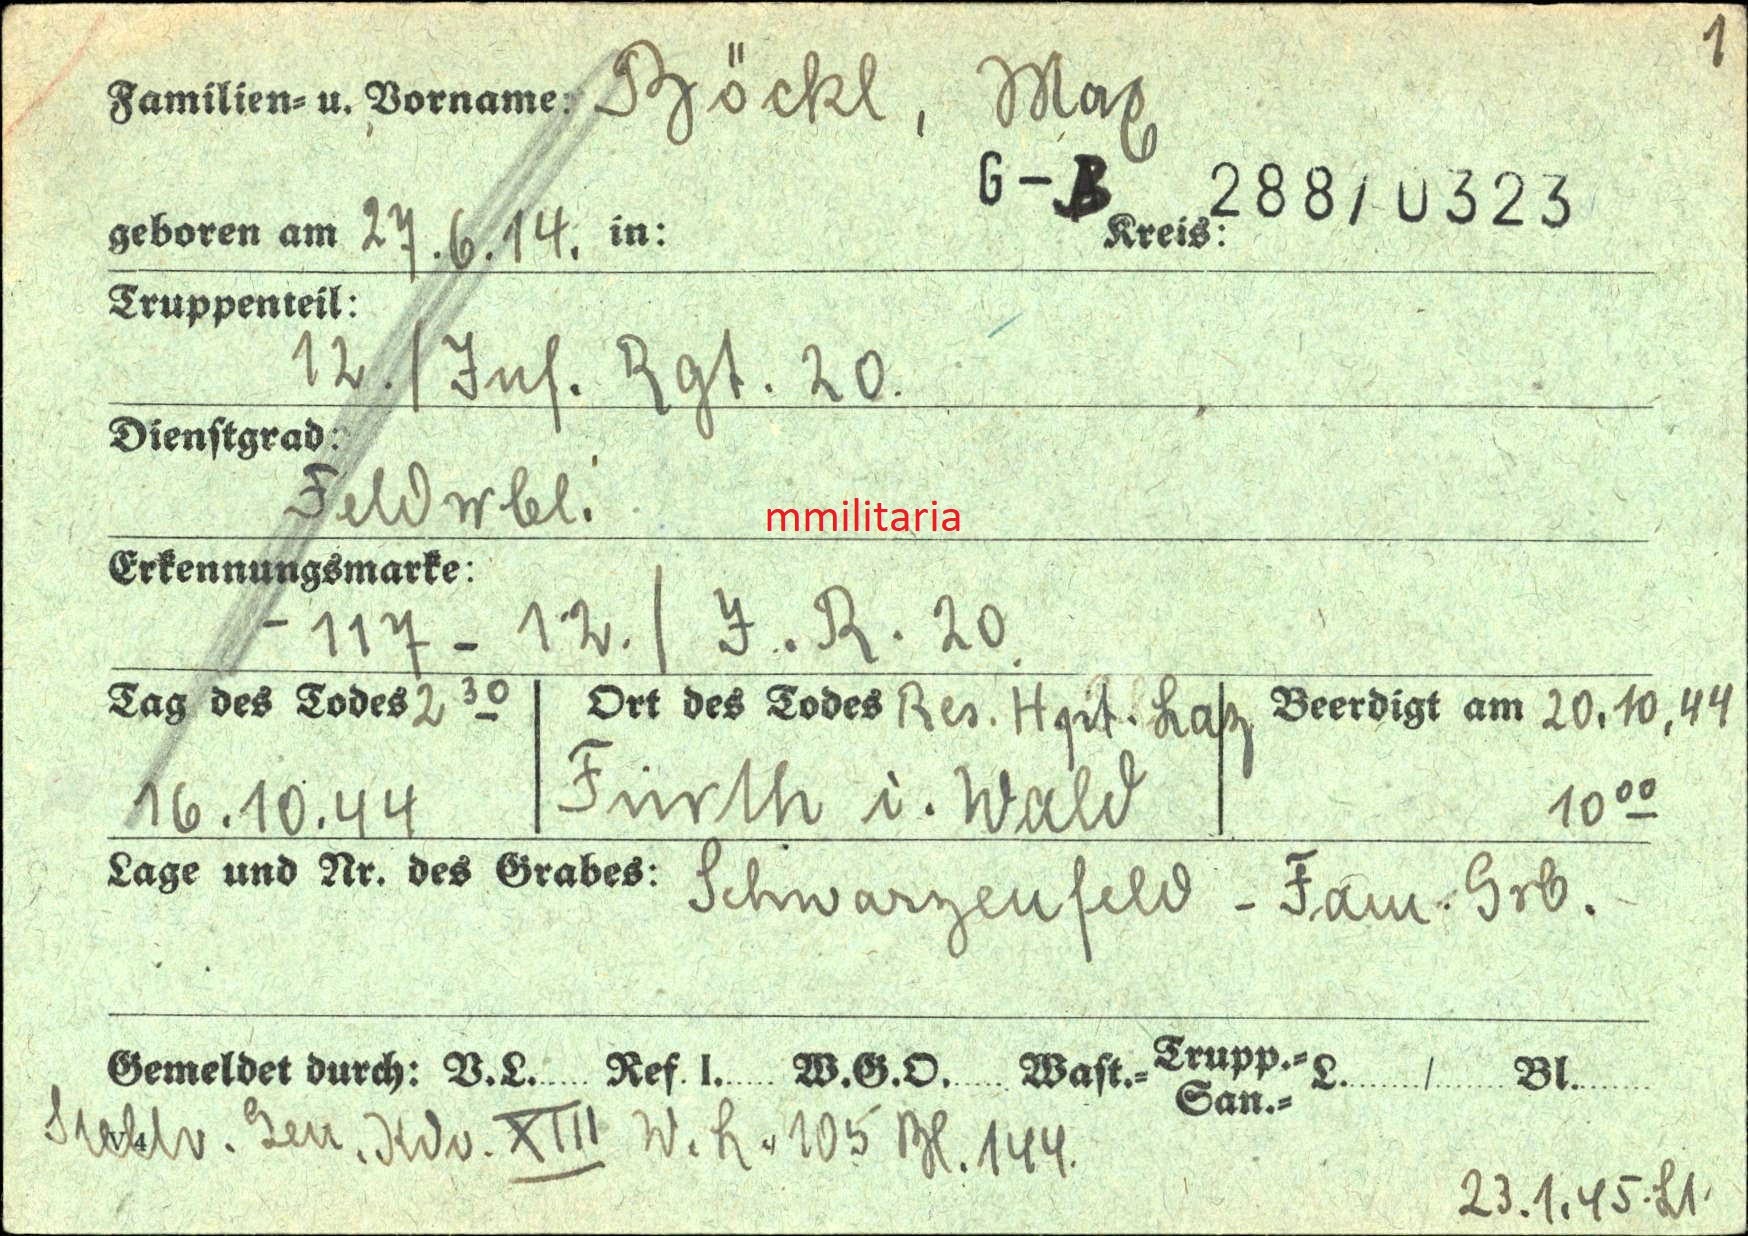 1
Familien- u. Vorname: Böckl, Max
G-B 288/0323
geboren am 27.6.14. in: Kreis:
Truppenteil:
12./Inf. Rgt. 20.
Dienstgrad:
Feldwbl.
mmilitaria
Erkennungsmarke:
- 117 - 12./ J. R. 20.
Tag des Todes 2 30 Ort des Todes Res. Hgit. Laz Beerdigt am 20.10.44
16.10.44 Furth i. Wald 10 00
Lage und Nr. des Grabes: Schwarzenfeld - Fam. Grb.
Gemeldet durch: V.L..... Ref. I..... W.G.O..... Wast.- Trupp.- San.- L......../........ Bl.........
Stellv. Gen. Kdo. XIII W. L. 105 Bl. 144.
23.1.45.